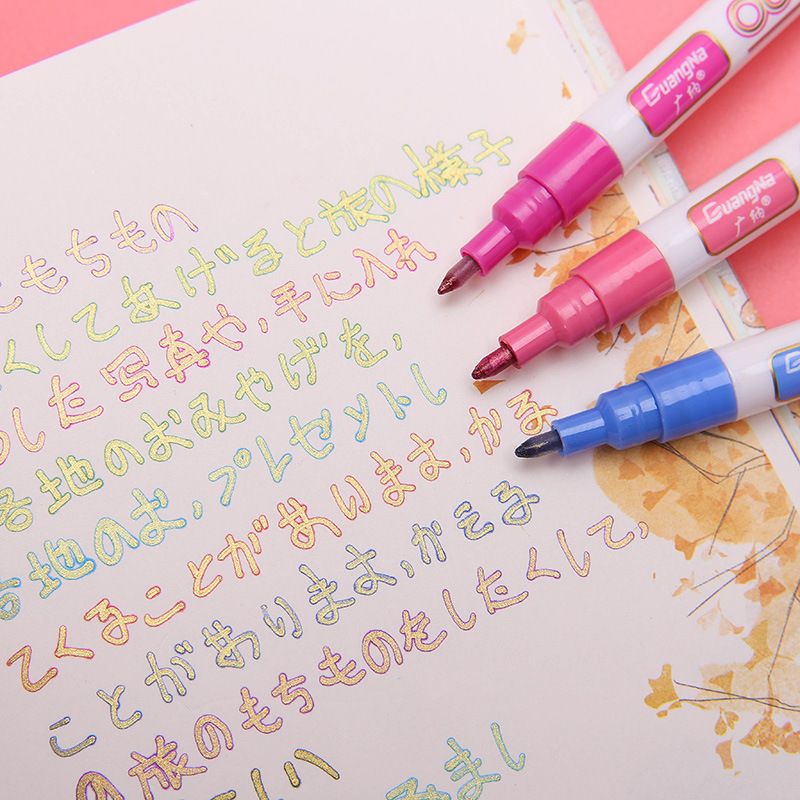 GuangNa
广纳®
GuangNa
广纳®
G
もちもの
くしてあげると旅の様子
した写真や,手に入れ
各地のおみやげを,
各地のお,プレゼントし
てくることがあります,かる
ことがあります,かえる
の旅のもちものをしたくして,
しい
みまし